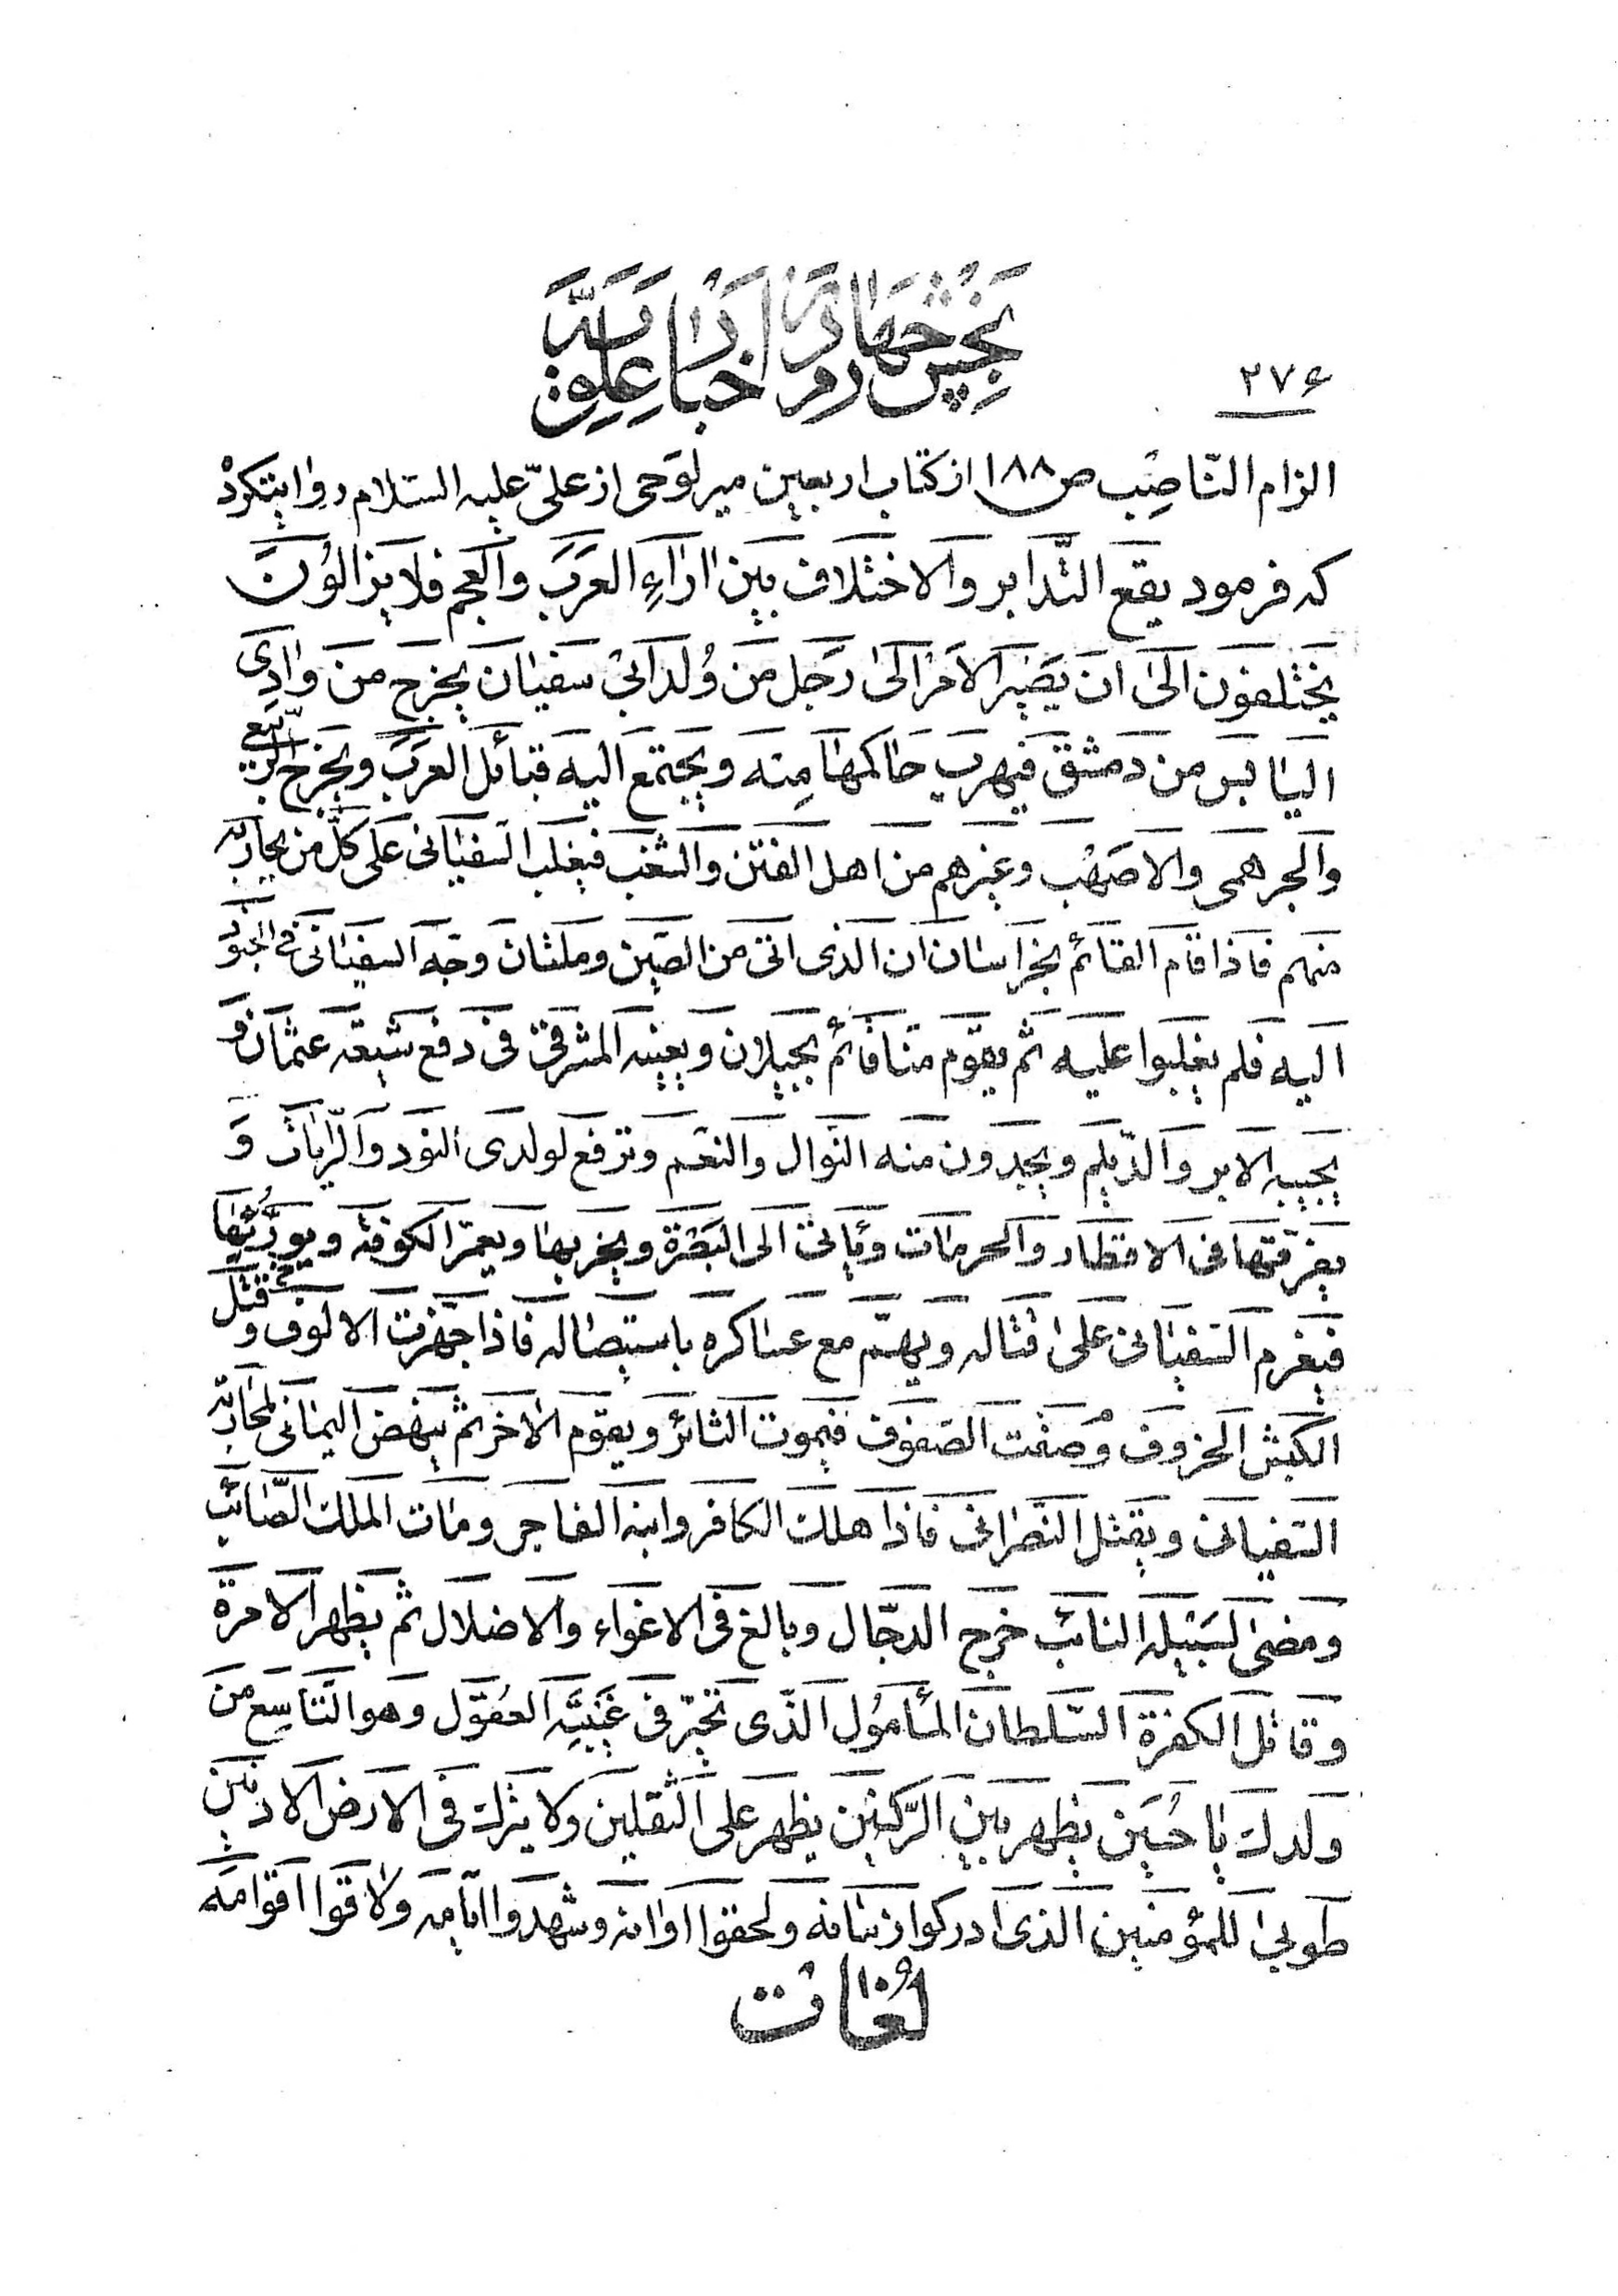 ۲۷۶
بخش چهارم در اخبار علویه
الزام النّاصِب ص ۱۸۸ از کتاب اربعین میر لوحی از علیّ علیه السّلام روایتکرده
که فرمود یقع التّدابر والاختلاف بین اراءِ العَرَبَ والعجم فلا یزالوُنَ
یختلفون الیٰ ان یَصیر الاَمر الیٰ رَجل من وُلد ابی سفیان یخرج من وادی
الیابس من دمشق فیهرب حاکمها مِنه ویجتمع الیه قبائل العرب ویخرج الرّبیعی
والجرهمی والاصهب وغیرهم من اهل الفتن والشغب فیغلب السّفیانی علی کلّ من یحاربه
منهم فاذا قام القائم بخراسان ان الذی اتی من الصّین وملتان وجّه السفیانی فی الجنود
الیه فلم یغلبوا علیه ثم یقوم منّا قائم بجیلان ویعینه المشرقی فی دفع شیعة عثمان و
یجیبه الابر والدّیلم ویجدون منه النّوال والنعَم وترفع لولدی النود والرّایات وَ
یفرّقها فی الاقطار والحرمات ویأتی الی البَصرَة ویخربها ویعمر الکوفة ویورّثها
فیغرم السّفیانی علیٰ قتاله ویهمّ مع عساکره باستیصاله فاذا جهّزت الالوف و قتل
الکبش الخروف وصُفّت الصّفوف فیموت الثائر ویقوم الاخر ثم ینهض الیمانی لمحاربة
السّفیانی ویقتل النّصرانی فاذا هلک الکافر وابنه الفاجر ومات الملک الصّائب
ومضیٰ لسَبیله النائب خرج الدجّال وبالغ فی الاغواء والاضلال ثم یظهر الامرة
وقاتل الکفرة السّلطان المأمُول الذّی تخیّر فی غَیبَتِه العُقول وهو التّاسِع من
ولدک یا حُسَین یظهر بین الرّکنین یظهر علی الثّقلین ولا یترک فی الارض الادنین
طوبیٰ للمؤمنین الذی ادرکوا زمانه ولحقوا اوانه وشهدوا ایّامه ولاقوا اقوامه
لُغات